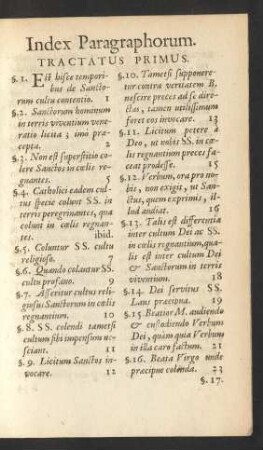 Index Paragraphorum.
TRACTATUS PRIMUS.
§. 1. Est hisce tempori-
bus de Sancto-
rum cultu contentio. 1
§. 2. Sanctorum hominum
in terris viventium vene-
ratio licita; imo præ-
cepta. 2
§. 3. Non est superstitio co-
lere Sanctos in cœlis re-
gnantes. 5
§. 4. Catholici eadem cul-
tus specie colunt SS. in
terris peregrinantes, qua
colunt in cœlis regnan-
tes. ibid.
§. 5. Coluntur SS. cultu
religioso. 7
§. 6. Quando colantur SS.
cultu profano. 9
§. 7. Asseritur cultus reli-
giosus Sanctorum in cœlis
regnantium. 10
§. 8. SS. colendi tametsi
cultum sibi impensum ne-
sciant. 11
§. 9. Licitum Sanctos in-
vocare. 12
§. 10. Tametsi supponere-
tur contra veritatem B.
nescire preces ad se dire-
ctas, tamen utilissimum
foret eos invocare. 13
§. 11. Licitum petere à
Deo, ut nobis SS. in cœ-
lis regnantium preces fa-
ceat prodesse. 15
§. 12. Verbum, ora pro no-
bis, non exigit, ut San-
ctus, quem exprimis, il-
lud audiat. 16
§. 13. Talis est differentia
inter cultum Dei ac SS.
in cœlis regnantium, qua-
lis est inter cultum Dei
& Sanctorum in terris
viventium. 18
§. 14. Dei servitus SS.
Laus præcipua. 19
§. 15. Beatior M. audiendo
& custodiendo Verbum
Dei, quàm quia Verbum
in illa caro factum. 21
§. 16. Beata Virgo unde
præcipue colenda. 23
§. 17.